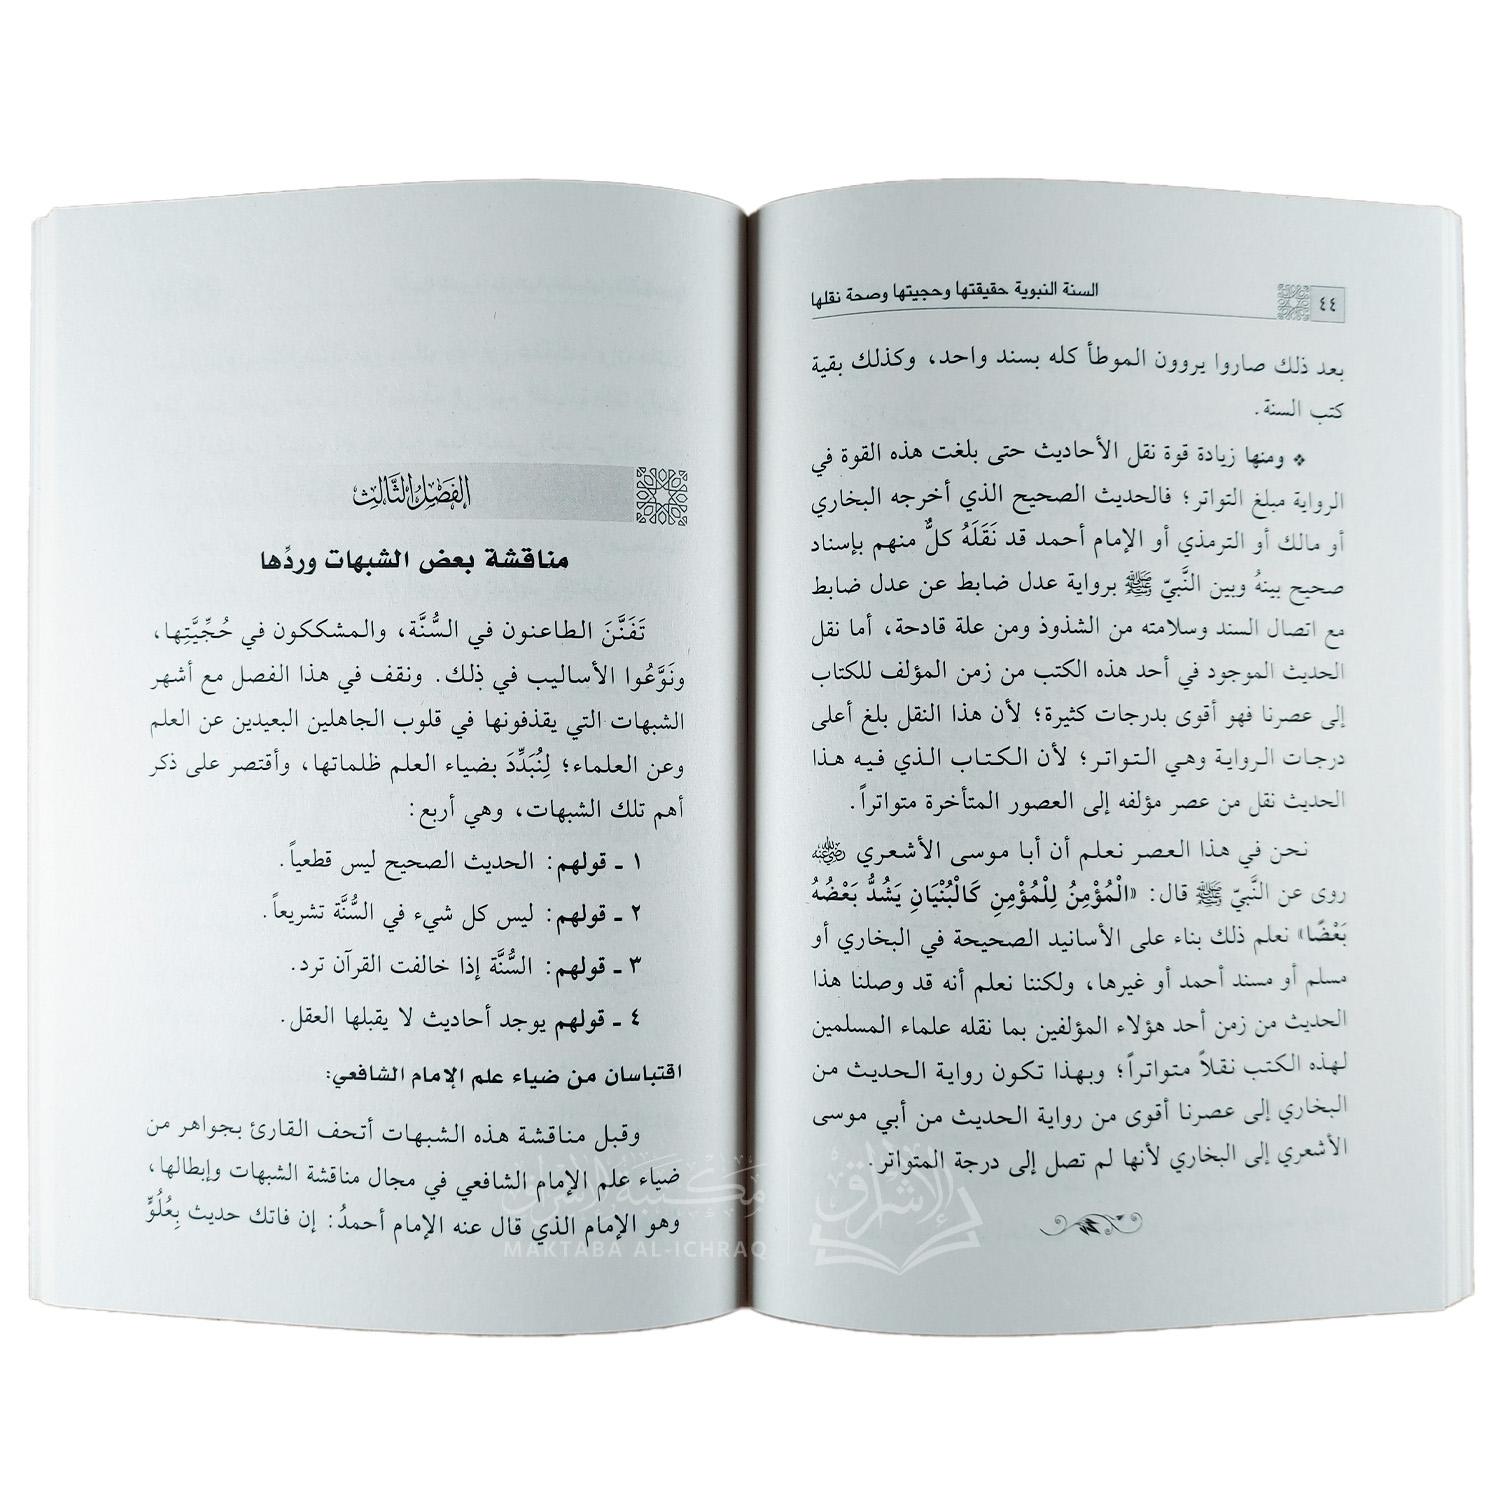 ٤٤
السنة النبوية حقيقتها وحجيتها وصحة نقلها
بعد ذلك صاروا يروون الموطأ كله بسند واحد، وكذلك بقية
كتب السنة.
❖ ومنها زيادة قوة نقل الأحاديث حتى بلغت هذه القوة في
الرواية مبلغ التواتر؛ فالحديث الصحيح الذي أخرجه البخاري
أو مالك أو الترمذي أو الإمام أحمد قد نَقَلَهُ كلٌّ منهم بإسناد
صحيح بينهُ وبين النَّبيّ ﷺ برواية عدل ضابط عن عدل ضابط
مع اتصال السند وسلامته من الشذوذ ومن علة قادحة، أما نقل
الحديث الموجود في أحد هذه الكتب من زمن المؤلف للكتاب
إلى عصرنا فهو أقوى بدرجات كثيرة؛ لأن هذا النقل بلغ أعلى
درجات الرواية وهي التواتر؛ لأن الكتاب الذي فيه هذا
الحديث نقل من عصر مؤلفه إلى العصور المتأخرة متواتراً.
نحن في هذا العصر نعلم أن أبا موسى الأشعري رضي الله عنه
روى عن النَّبيّ ﷺ قال: «الْمُؤْمِنُ لِلْمُؤْمِنِ كَالْبُنْيَانِ يَشُدُّ بَعْضُهُ
بَعْضًا» نعلم ذلك بناء على الأسانيد الصحيحة في البخاري أو
مسلم أو مسند أحمد أو غيرها، ولكننا نعلم أنه قد وصلنا هذا
الحديث من زمن أحد هؤلاء المؤلفين بما نقله علماء المسلمين
لهذه الكتب نقلاً متواتراً؛ وبهذا تكون رواية الحديث من
البخاري إلى عصرنا أقوى من رواية الحديث من أبي موسى
الأشعري إلى البخاري لأنها لم تصل إلى درجة المتواتر.
الفَصْلُ الثَّالِث
مناقشة بعض الشبهات وردِّها
تَفَنَّنَ الطاعنون في السُّنَّة، والمشككون في حُجِّيَّتِها،
ونَوَّعُوا الأساليب في ذلك. ونقف في هذا الفصل مع أشهر
الشبهات التي يقذفونها في قلوب الجاهلين البعيدين عن العلم
وعن العلماء؛ لِنُبَدِّدَ بضياء العلم ظلماتها، وأقتصر على ذكر
أهم تلك الشبهات، وهي أربع:
١ ـ قولهم: الحديث الصحيح ليس قطعياً.
٢ ـ قولهم: ليس كل شيء في السُّنَّة تشريعاً.
٣ ـ قولهم: السُّنَّة إذا خالفت القرآن ترد.
٤ ـ قولهم يوجد أحاديث لا يقبلها العقل.
اقتباسان من ضياء علم الإمام الشافعي:
وقبل مناقشة هذه الشبهات أتحف القارئ بجواهر من
ضياء علم الإمام الشافعي في مجال مناقشة الشبهات وإبطالها،
وهو الإمام الذي قال عنه الإمام أحمدُ: إن فاتك حديث بِعُلُوٍّ
مكتبة الإشراق
MAKTABA AL-ICHRAQ
الإشراق